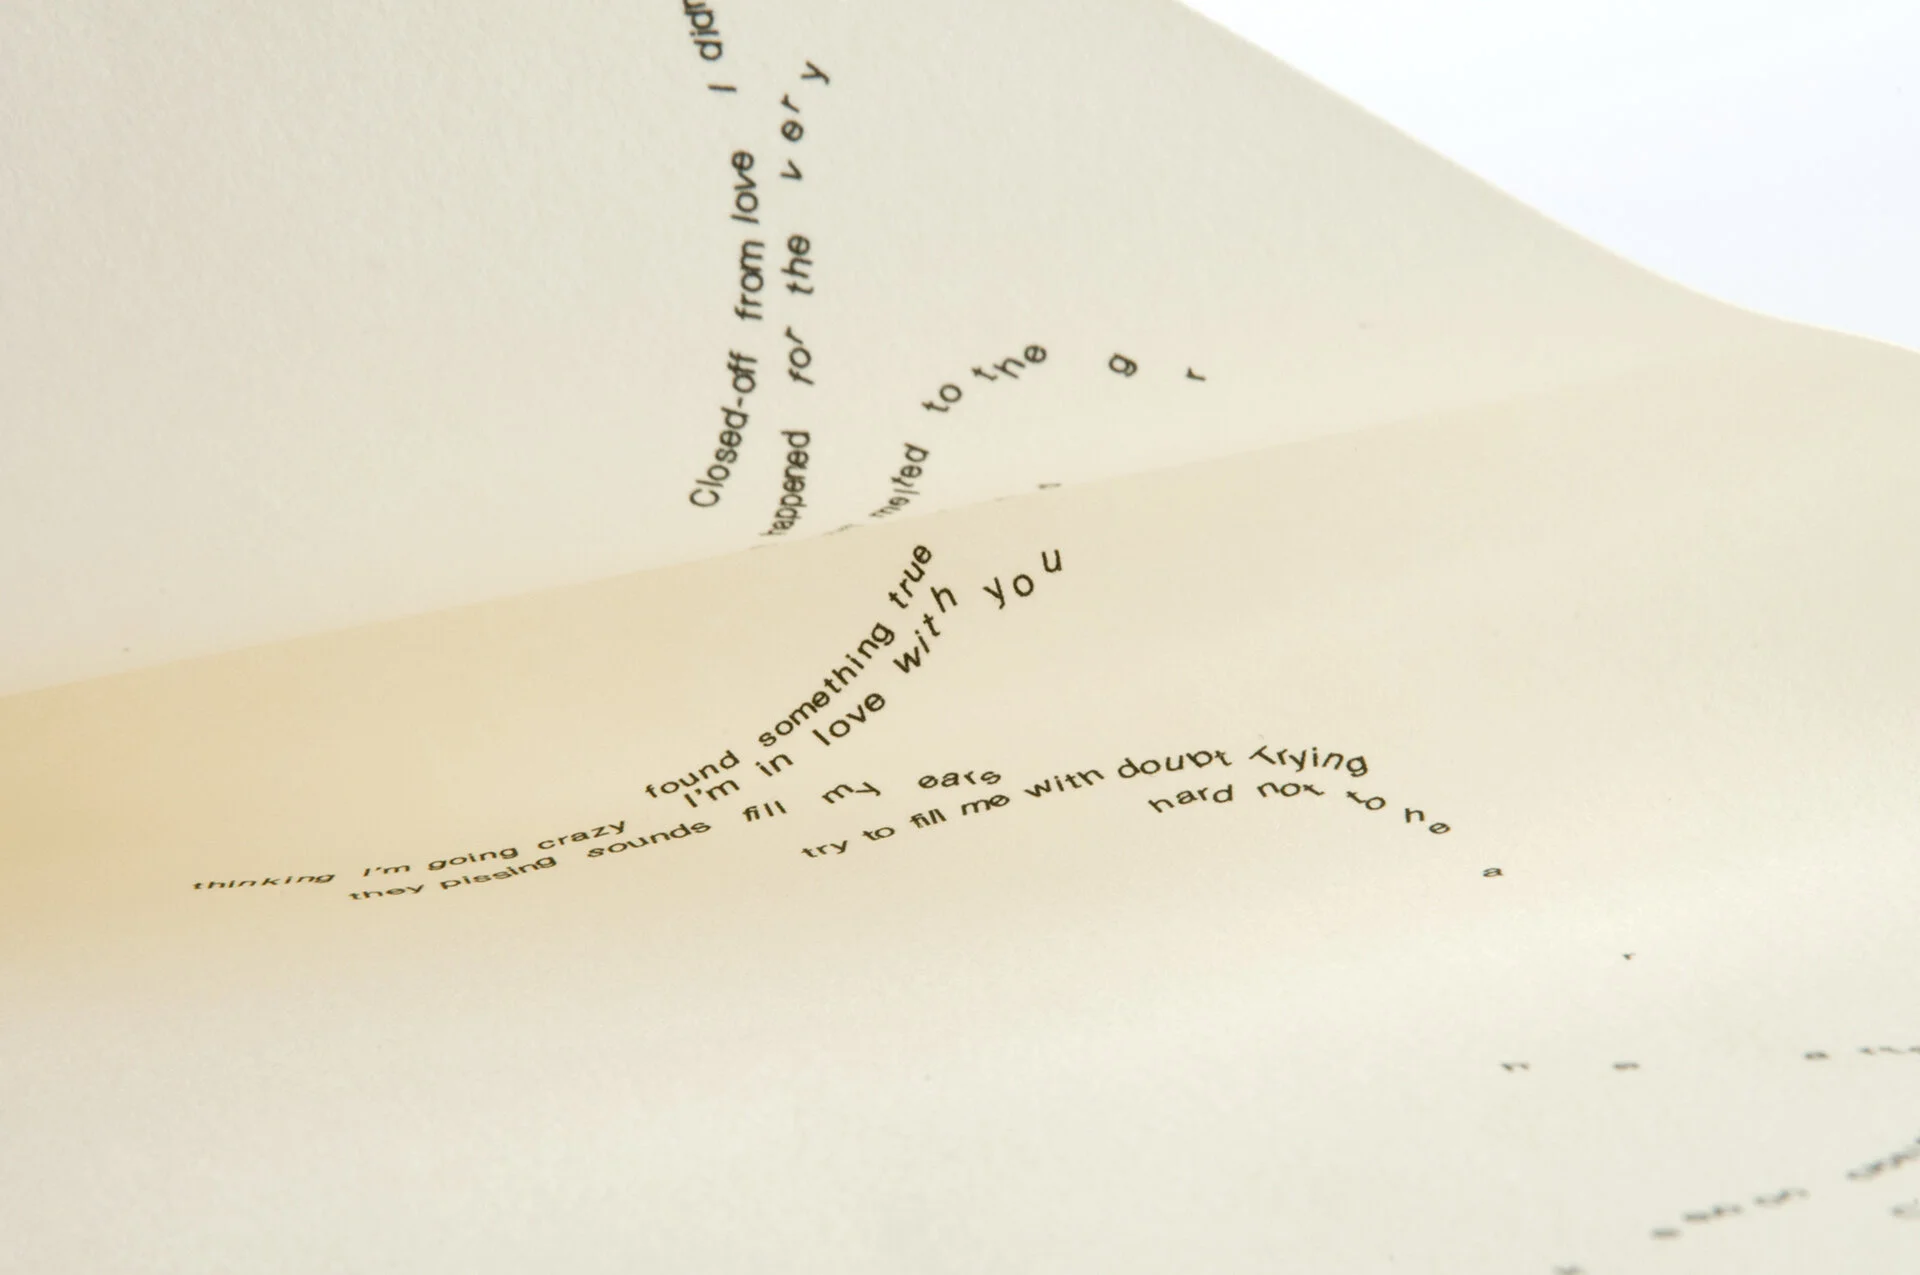 Closed-off from love I didn
happened for the very
melted to the g r
found something true
I'm in love with you
thinking I'm going crazy
they pissing sounds fill my ears
try to fill me with doubt Trying
hard not to hea r